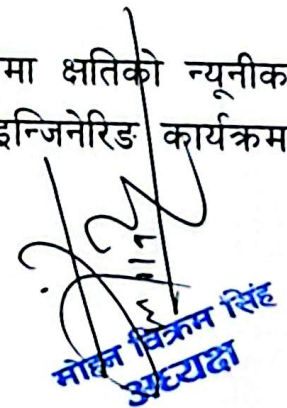 मा क्षतिको न्यूनीक
इन्जिनेरिङ कार्यक्रम
मोहन विक्रम सिंह
अध्यक्ष